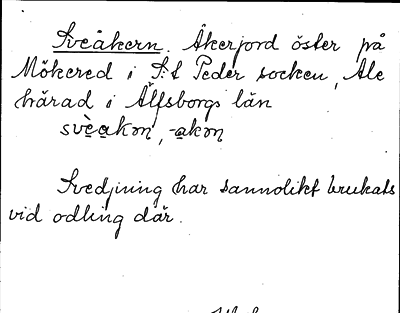 Sveåkern. Åkerjord öster på
Mökered i S:t Peder socken, Ale
härad i Älfsborgs län
svèakәn, -akәn
Svedjning har sannolikt brukats
vid odling där.